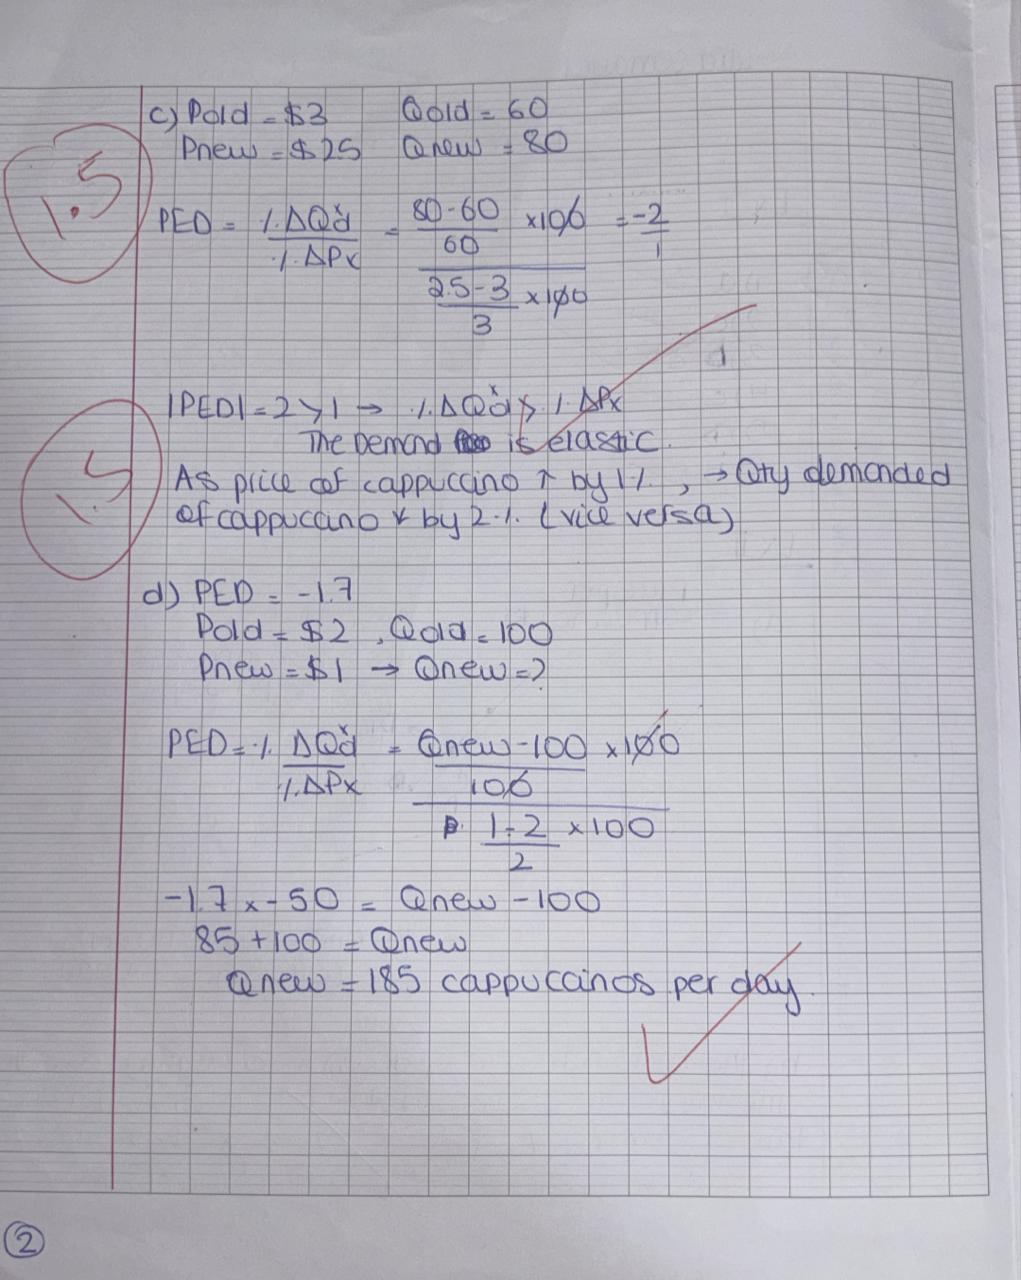 c) Pold = $3 Qold = 60
Pnew = $2.5 Qnew = 80
1.5
PED = %ΔQdx / %ΔPx = ((80-60)/60 x100) / ((2.5-3)/3 x100) = -2/1
|PED| = 2 > 1 → %ΔQdx > %ΔPx
The Demand is elastic.
1.5
As price of cappuccino ↑ by 1%, → Qty demanded
of cappuccino ↓ by 2%. (vice versa)
d) PED = -1.7
Pold = $2, Qold = 100
Pnew = $1 → Qnew = ?
PED = %ΔQdx / %ΔPx = ((Qnew-100)/100 x100) / ((1-2)/2 x100)
-1.7 x -50 = Qnew - 100
85 + 100 = Qnew
Qnew = 185 cappuccinos per day.
2